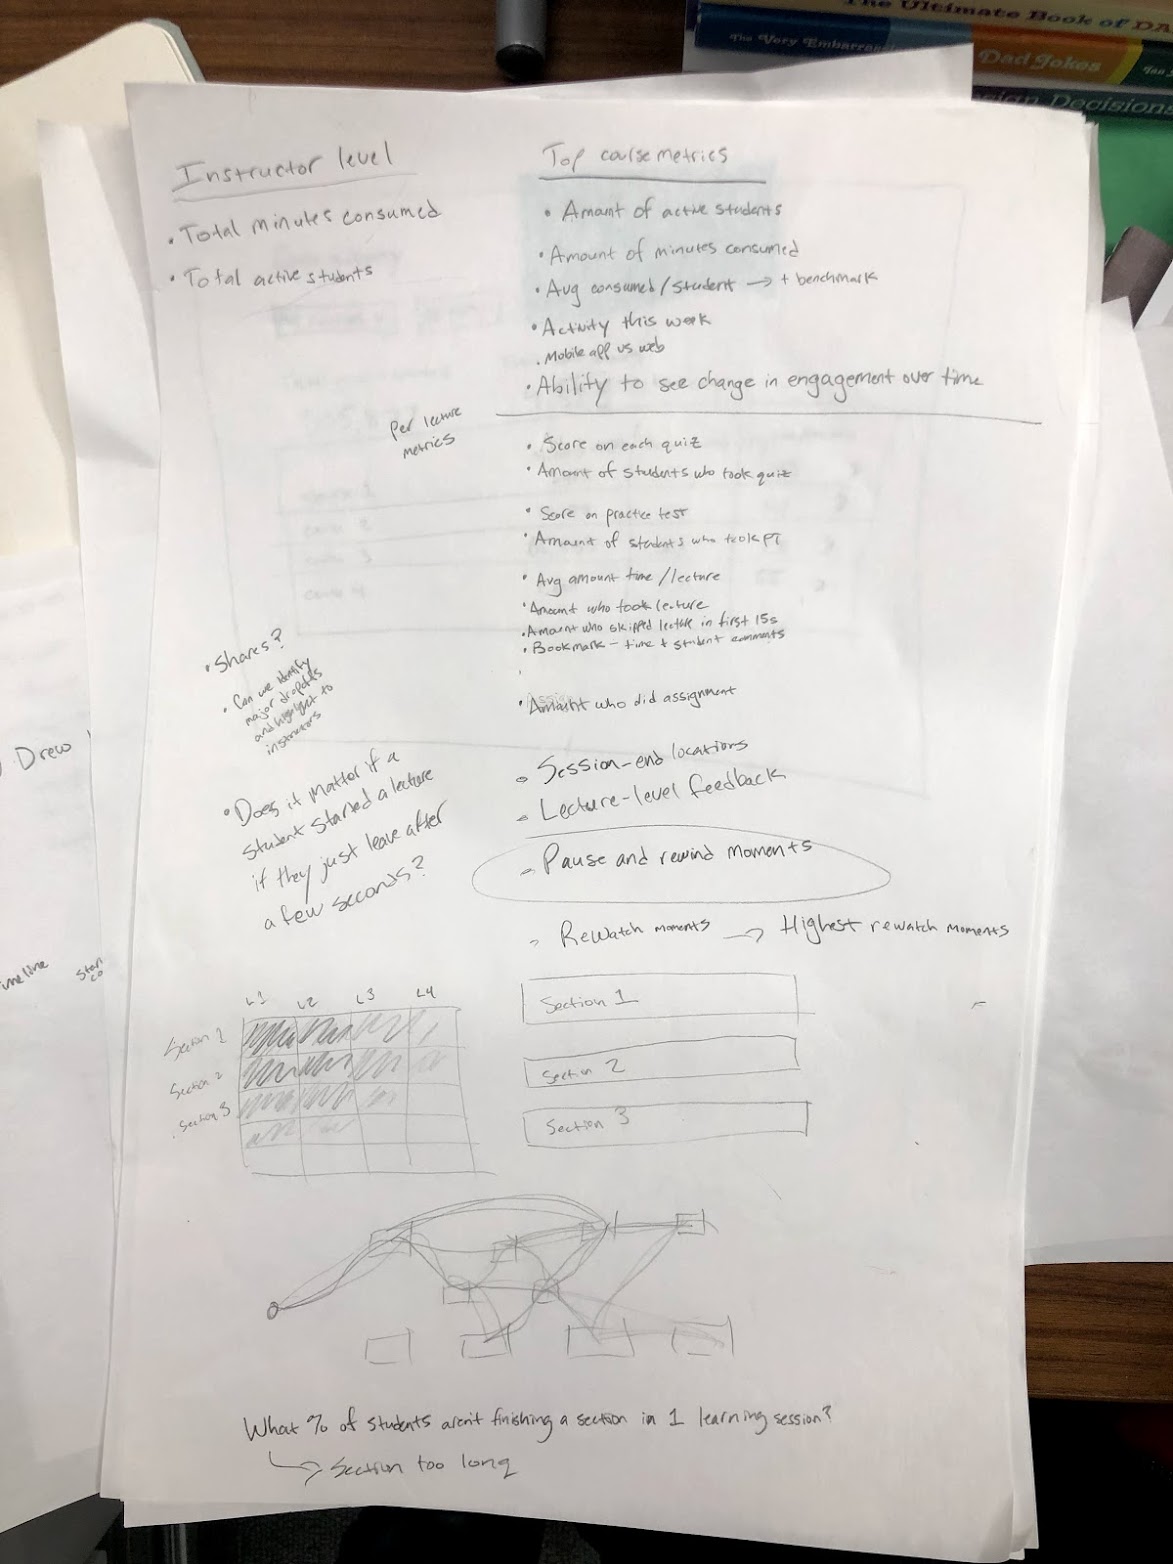 The Ultimate Book of DA
The Very Embarra
Dad Jokes
Ian
sign Decisions
Instructor level
• Total minutes consumed
• Total active students
Top course metrics
• Amount of active students
• Amount of minutes consumed
• Avg consumed/student → + benchmark
• Activity this week
• Mobile app vs web
• Ability to see change in engagement over time
Per lecture
metrics
• Score on each quiz
• Amount of students who took quiz
• Score on practice test
• Amount of students who took PT
• Avg amount time/lecture
• Amount who took lecture
• Amount who skipped lecture in first 15s
• Bookmark - time + student comments
• Amount who did assignment
• Shares?
• Can we identify
major dropoffs
and highlight to
instructors
• Does it matter if a
student started a lecture
if they just leave after
a few seconds?
• Session-end locations
• Lecture-level feedback
• Pause and rewind moments
• Rewatch moments → Highest rewatch moments
L1 L2 L3 L4
Section 1
Section 2
Section 3
Section 1
Section 2
Section 3
What % of students aren't finishing a section in 1 learning session?
→ Section too long
Drew
meline